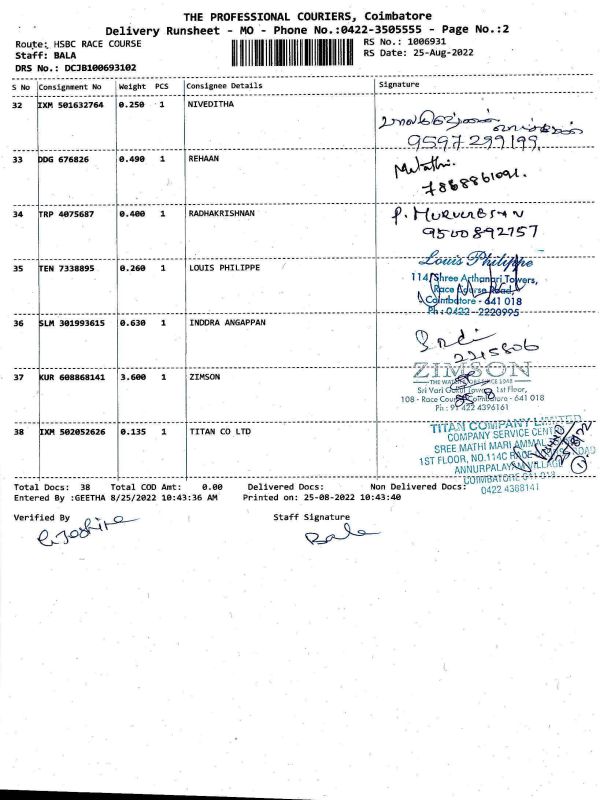 THE PROFESSIONAL COURIERS, Coimbatore
Delivery Runsheet - MO - Phone No.:0422-3505555 - Page No.:2
Route: HSBC RACE COURSE
RS No.: 1006931
Staff: BALA
RS Date: 25-Aug-2022
DRS No.: DCJB100693102
S No Consignment No Weight PCS Consignee Details Signature
32 IXM 501632764 0.250 1 NIVEDITHA
9597299199
33 DDG 676826 0.490 1 REHAAN
7868861091.
34 TRP 4075687 0.400 1 RADHAKRISHNAN P. MURUGESAN
9500892757
35 TEN 7338895 0.260 1 LOUIS PHILIPPE Louis Philippe
114, Shree Arthanari Towers,
Race Course Road,
Coimbatore - 641 018
Ph : 0422 - 2220995
36 SLM 301993615 0.630 1 INDDRA ANGAPPAN
2215806
37 KUR 608868141 3.600 1 ZIMSON ZIMSON
Sri Vari Gokul Towers, 1st Floor,
108 - Race Course, Coimbatore - 641 018
Ph : 91 422 4396161
38 IXM 502052626 0.135 1 TITAN CO LTD TITAN COMPANY LIMITED
COMPANY SERVICE CENTRE
SREE MATHI MARI AMMAL
1ST FLOOR, NO.114C RACE ROAD
ANNURPALAYAM VILLAGE
COIMBATORE 641 018
0422 4368141
Total Docs: 38 Total COD Amt: 0.00 Delivered Docs: Non Delivered Docs:
Entered By :GEETHA 8/25/2022 10:43:36 AM Printed on: 25-08-2022 10:43:40
Verified By Staff Signature
Bala